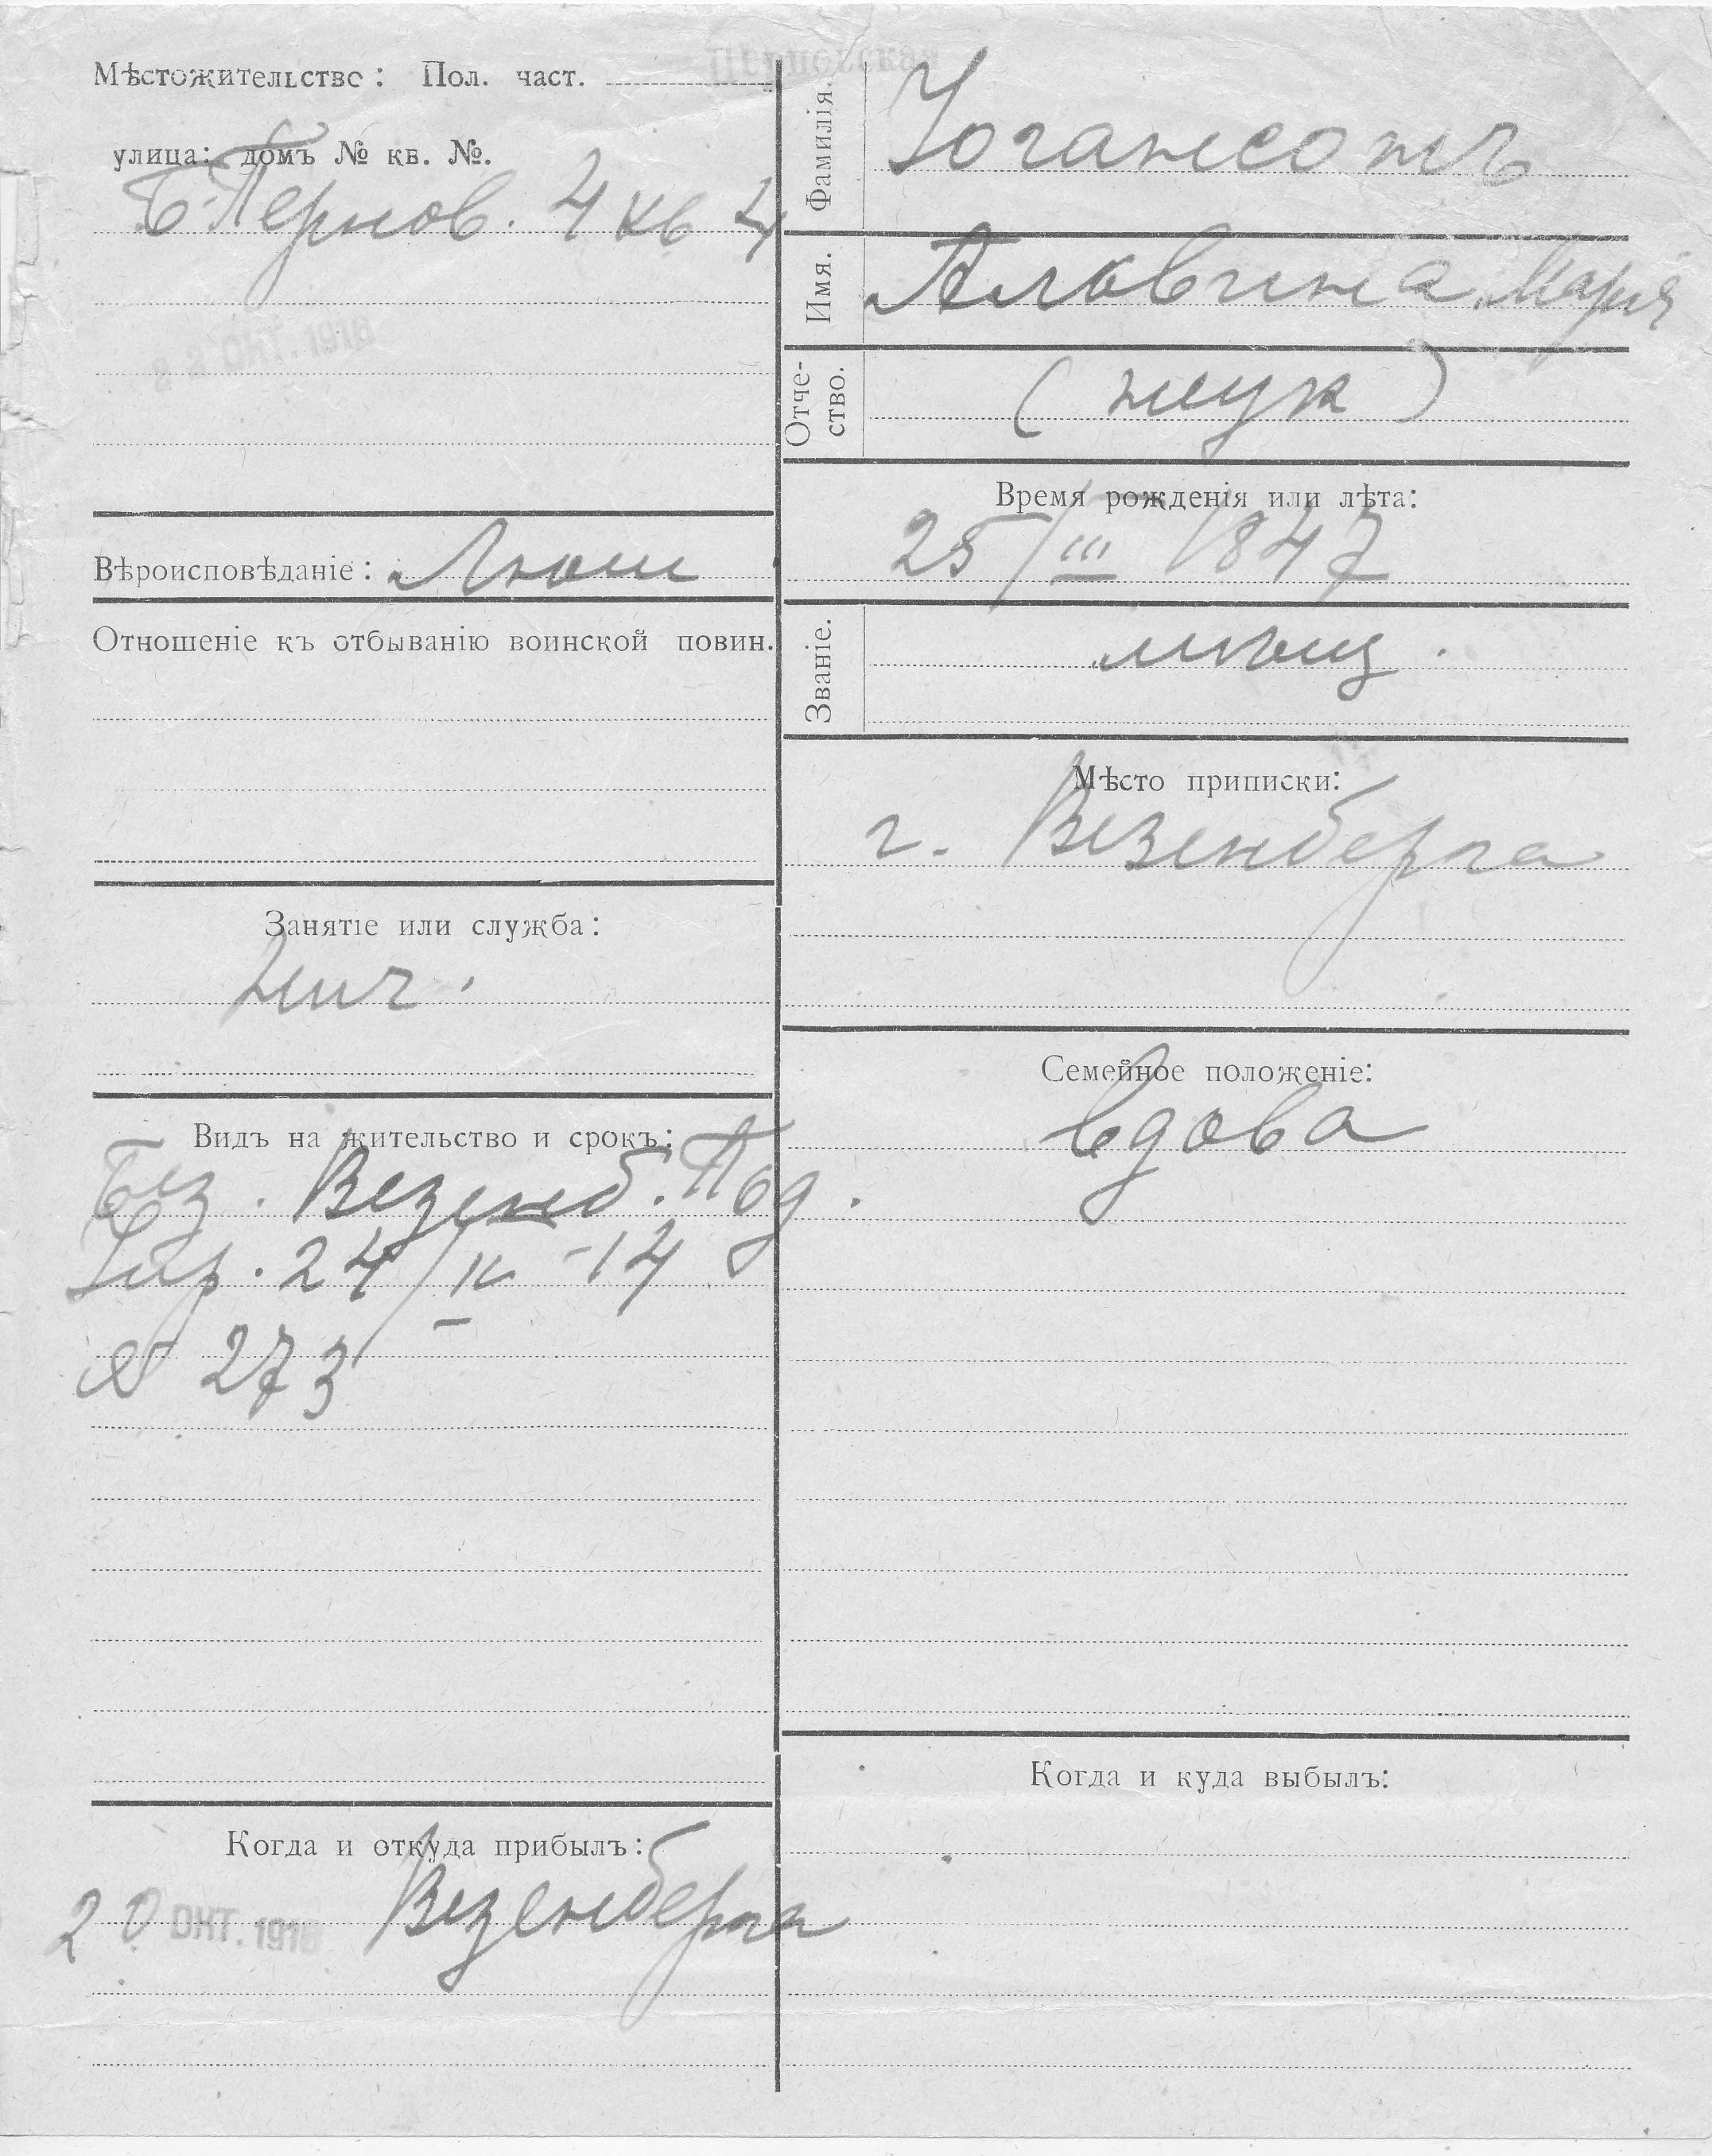 Перновская
Мѣстожительство: Пол. част.
улица: домъ № кв. №.
Б-Пернов. 4 кв 4
22 ОКТ. 1916
Вѣроисповѣданіе: Лют
Отношеніе къ отбыванію воинской повин.
Занятіе или служба:
Видъ на жительство и срокъ:
Без. Везенб. Под.
Упр. 24/IV -14
№ 273
Когда и откуда прибылъ:
20 ОКТ. 1916 Везенберга
Фамилія. Іогансонъ
Имя. Алвина Марія
Отче-
ство.
Время рожденія или лѣта:
25/III 1847
Званіе. мѣщ.
Мѣсто приписки:
г. Везенберга
Семейное положеніе:
вдова
Когда и куда выбылъ: